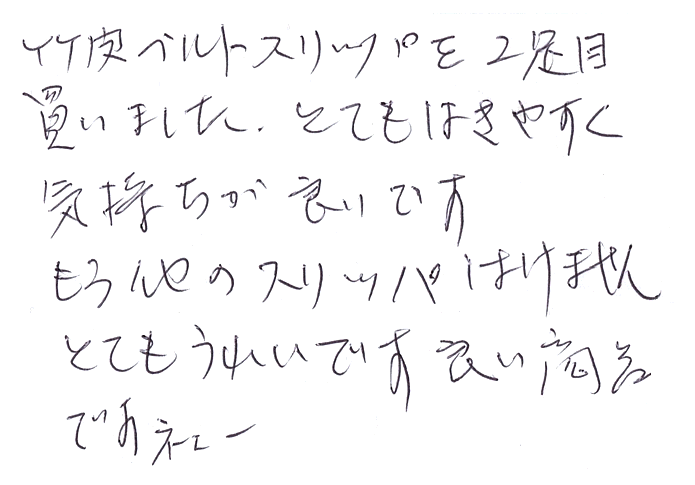 竹皮ベルトスリッパを2足目
買いました、とてもはきやすく
気持ちが良いです
もう他のスリッパはけません
とてもうれいです良い商品
ですネェー